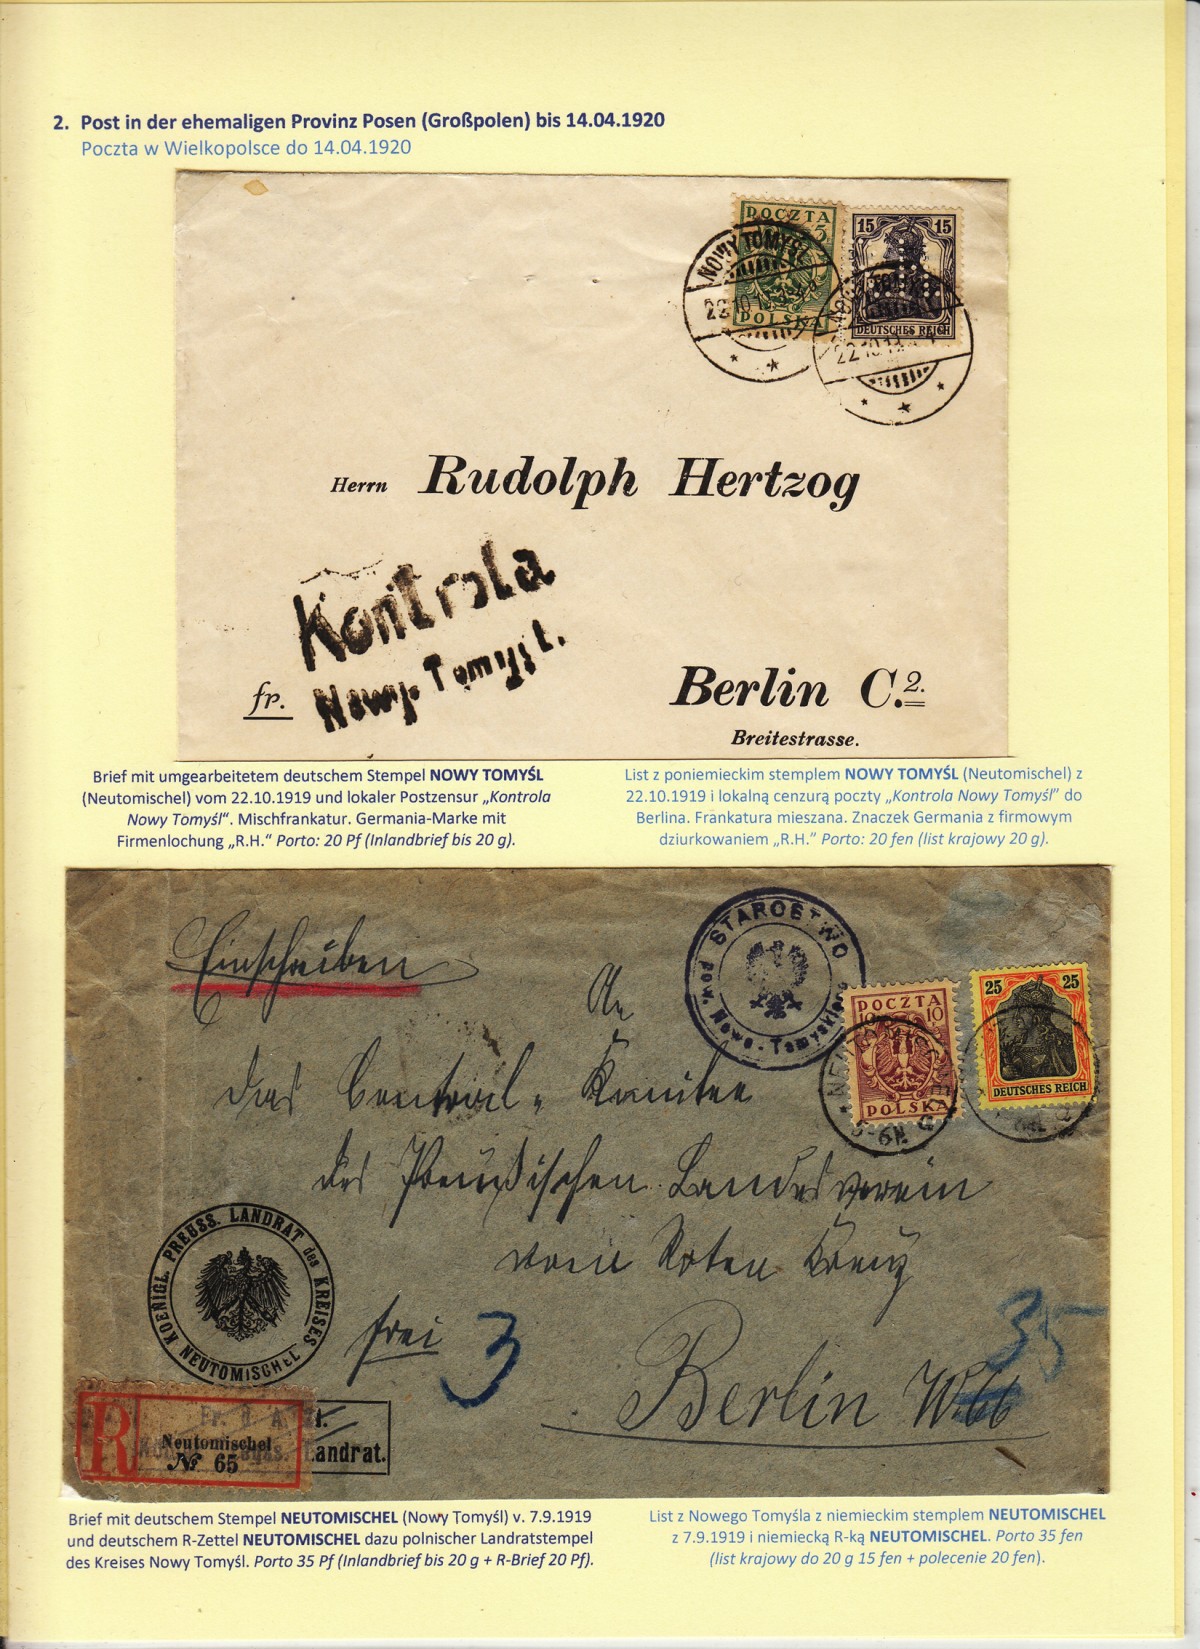 2. Post in der ehemaligen Provinz Posen (Großpolen) bis 14.04.1920
Poczta w Wielkopolsce do 14.04.1920
POCZTA
5
POLSKA
15 15
DEUTSCHES REICH
NOWY TOMYŚL
22.10.19
22.10.19
Herrn Rudolph Hertzog
Kontrola
Nowy-Tomyśl.
fr.
Berlin C.2.
Breitestrasse.
Brief mit umgearbeitetem deutschem Stempel NOWY TOMYŚL
(Neutomischel) vom 22.10.1919 und lokaler Postzensur „Kontrola
Nowy Tomyśl“. Mischfrankatur. Germania-Marke mit
Firmenlochung „R.H.“ Porto: 20 Pf (Inlandbrief bis 20 g).
List z poniemieckim stemplem NOWY TOMYŚL (Neutomischel) z
22.10.1919 i lokalną cenzurą poczty „Kontrola Nowy Tomyśl” do
Berlina. Frankatura mieszana. Znaczek Germania z firmowym
dziurkowaniem „R.H.” Porto: 20 fen (list krajowy 20 g).
Einschreiben
STAROSTWO
pow. Nowo-Tomyskiego
POCZTA
10 10
POLSKA
25 25
DEUTSCHES REICH
An
das Central-Komitee
des Preußischen Landesverein
vom Roten Kreuz
frei
3
35
Berlin W.66
KOENIGL. PREUSS. LANDRAT des KREISES
NEUTOMISCHEL
R
Neutomischel
№ 65
Landrat.
Brief mit deutschem Stempel NEUTOMISCHEL (Nowy Tomyśl) v. 7.9.1919
und deutschem R-Zettel NEUTOMISCHEL dazu polnischer Landratstempel
des Kreises Nowy Tomyśl. Porto 35 Pf (Inlandbrief bis 20 g + R-Brief 20 Pf).
List z Nowego Tomyśla z niemieckim stemplem NEUTOMISCHEL
z 7.9.1919 i niemiecką R-ką NEUTOMISCHEL. Porto 35 fen
(list krajowy do 20 g 15 fen + polecenie 20 fen).